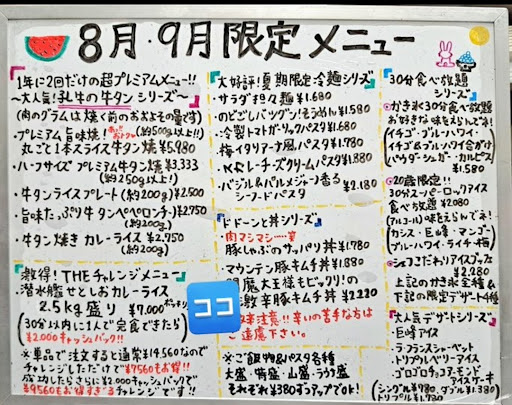 8月・9月限定メニュー
1年に2回だけの超プレミアムメニュー!!
〜大人気!乳牛の牛タンシリーズ〜
(肉のグラムは焼く前のおおよその量です)
・プレミアム旨味焼!(約500g以上!!)
丸ごと1本スライス牛タン焼 ¥5,980
・ハーフサイズプレミアム牛タン焼 ¥3,333
(約250g以上!)
・牛タンライスプレート(約200g) ¥2,500
・旨味たっぷり牛タンペペロンチーノ ¥2,750
(約200g)
・牛タン焼きカレーライス ¥2,750
(約200g)
激得!THEチャレンジメニュー
・潜水艦せとしおカレーライス
2.5kg盛り ¥7,000ポッキリ
(30分以内に1人で完食できたら)
¥2,000キャッシュバック!!
※単品で注文すると通常¥14,560なので
チャレンジしただけで¥7560もお得!!
成功したらさらに¥2,000キャッシュバックで
¥9560もお得すぎるチャレンジです!!
大好評!夏期限定冷麺シリーズ
・サラダ担々麺 ¥1,680
・のどごしバツグン!そうめん ¥1,580
・冷製トマトガーリックパスタ ¥1,680
・梅イタリアーナ風パスタ ¥1,780
レーズクリームパスタ ¥1,880
・バジル&パルメジャーノ香る
シーフードパスタ ¥2,180
ドドーンと丼シリーズ
肉マシマシ……笑
豚しゃぶのサッパリ丼 ¥1,780
・マウンテン豚キムチ丼 ¥1,880
魔大王様もビックリ!の
激辛豚キムチ丼 ¥2,220
注意!!辛いの苦手な方は
ご遠慮下さい。
ココ
※ご飯物&パスタ各種
大盛・特盛・山盛・うら盛
それぞれ¥380ずつアップでok!
30分食べ放題
シリーズ
・かき氷30分食べ放題
お好きな味をえらんでネ!
(イチゴ・ブルーハワイ・
イチゴ&ブルーハワイ合がけ
パウダーシュガー・カルピス)
¥1,580
・20歳限定!!
30分スーパーロックアイス
食べ放題 ¥2,080
(アルコール)味をえらんでネ!
(カシス・巨峰・マンゴー
ブルーハワイ・ライチ・梅)
・シェフこだわりアイスブッフェ
¥2,280
上記のかき氷全種&
下記の限定デザート4種
大人気デザートシリーズ
・巨峰アイス
・ラ・フランスシャーベット
・トリプルベリーアイス
・ゴロゴロチョコアーモンド
アイスケーキ
(シングル¥980 ダブル¥1,380)
トリプル¥1,780